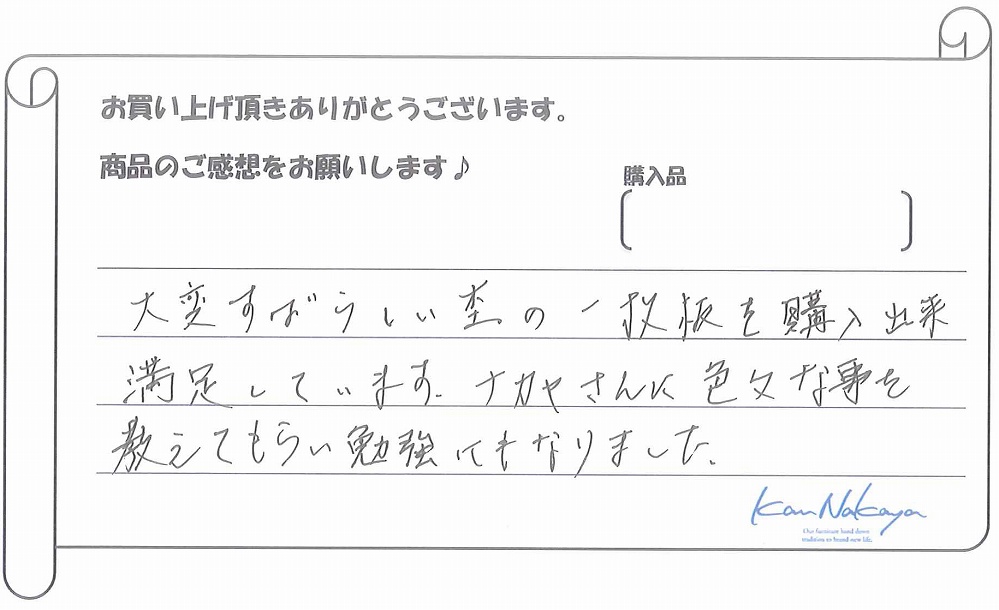 お買い上げ頂きありがとうございます。
商品のご感想をお願いします♪
購入品
大変すばらしい杢の一枚板を購入出来
満足しています。ナカヤさんに色々な事を
教えてもらい勉強にもなりました。
Kan Nakaya
Our furniture hand down
tradition to brand new life.